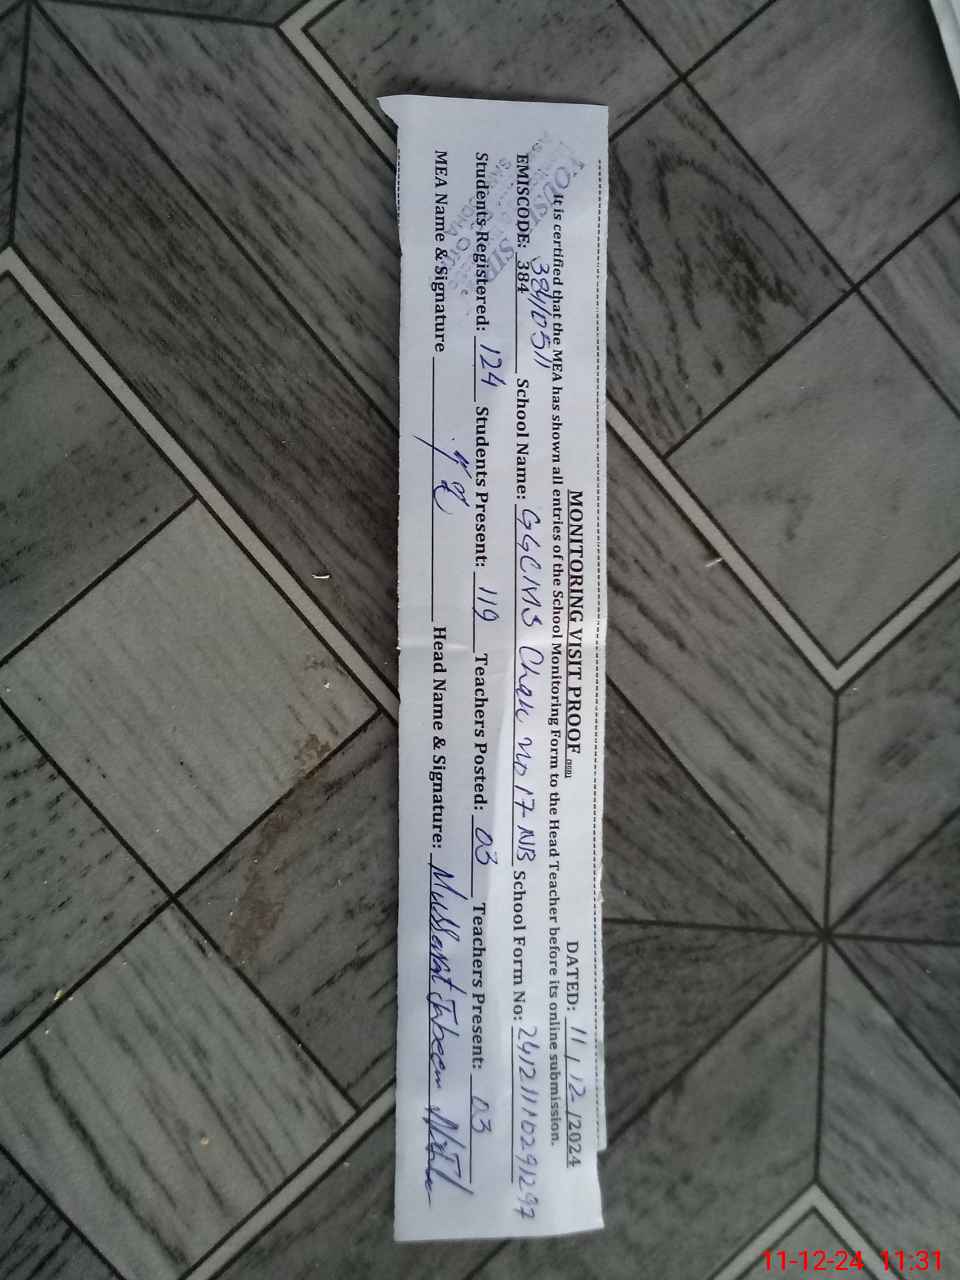 MONITORING VISIT PROOF
DATED: 11/12/2024
It is certified that the MEA has shown all entries of the School Monitoring Form to the Head Teacher before its online submission.
EMISCODE: 384 38410511 School Name: GGCMS Chak No 17 NB School Form No: 241211110291297
Students Registered: 124 Students Present: 119 Teachers Posted: 03 Teachers Present: 03
MEA Name & Signature Head Name & Signature: Mussarat Jabeen
11-12-24 11:31